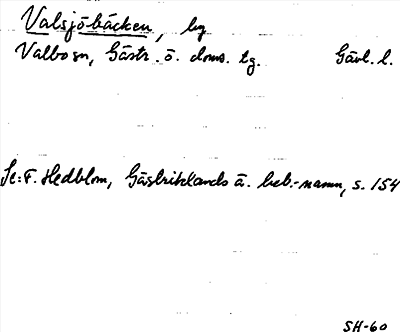 Valsjöbäcken, by
Valbo sn, Gästr. ö. doms. tg. Gävl. l.
Se: F. Hedblom, Gästriklands ä. beb.-namn, s. 154
SH-60